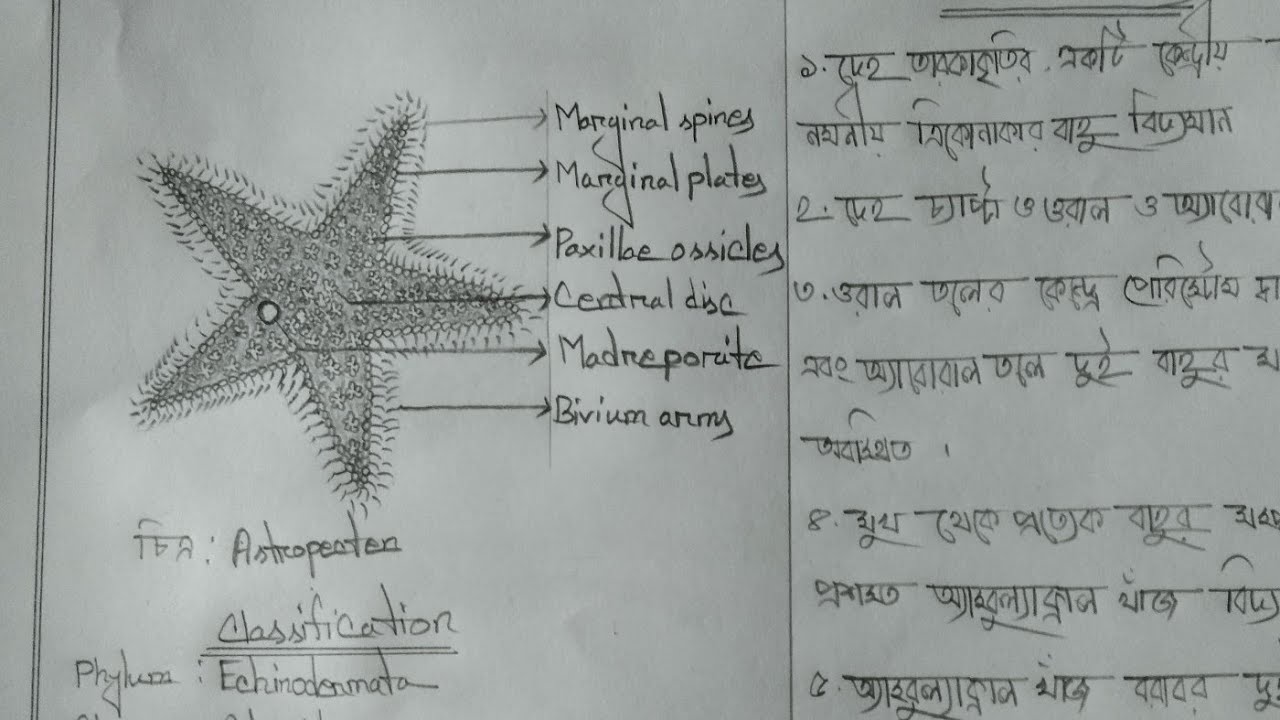 Marginal spines
Marginal plates
Paxillae ossicles
Central disc
Madreporite
Bivium arms
চিত্র: Astropecten
Classification
Phylum : Echinodermata
১. দেহ তারকাকৃতির. একটি কেন্দ্রীয়
নমনীয় ত্রিকোনাকার বাহু বিদ্যমান
২. দেহ চ্যাপ্টা ও ওরাল ও অ্যাবোরা
৩. ওরাল তলের কেন্দ্রে পেরিস্টোম
এবং অ্যাবোরাল তলে দুই বাহুর
অবস্থিত ।
৪. মুখ থেকে প্রত্যেক বাহুর
প্রশস্ত অ্যাম্বুল্যাক্রাল খাঁজ
৫. অ্যাম্বুল্যাক্রাল খাঁজ বরাবর